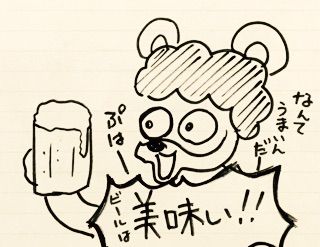 なんて
うまいんだ
ぷはー
ビールは
美味い!!